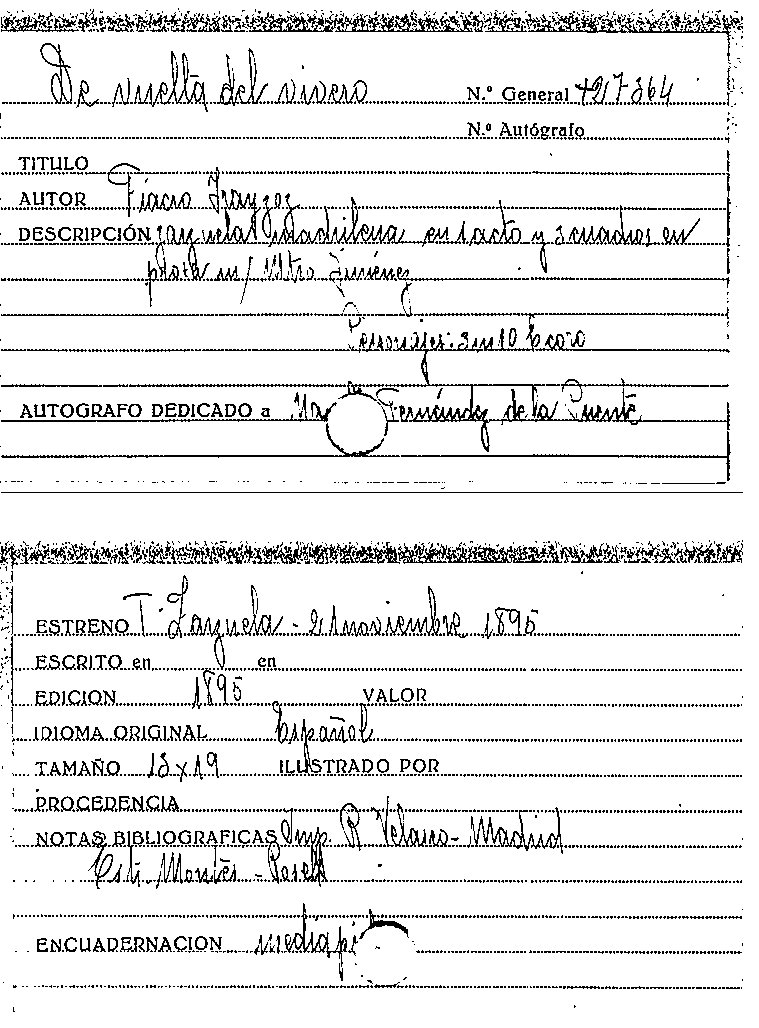 De vuelta del vivero
N.º General 427364
N.º Autógrafo
TITULO
AUTOR Fiacro Yrayzoz
DESCRIPCIÓN zarzuela Madrileña en 1 acto y 3 cuadros en
m/ Mtro Jiménez
Personajes: 3 m 10 h coro
AUTOGRAFO DEDICADO a Ma Fernández de la Puente
ESTRENO T. Zarzuela - 21 noviembre 1895
ESCRITO en en
EDICION 1895 VALOR
IDIOMA ORIGINAL Español
TAMAÑO 13x19 ILUSTRADO POR
PROCEDENCIA
NOTAS BIBLIOGRAFICAS Imp. R Velasco - Madrid
Montes -
ENCUADERNACION media pi